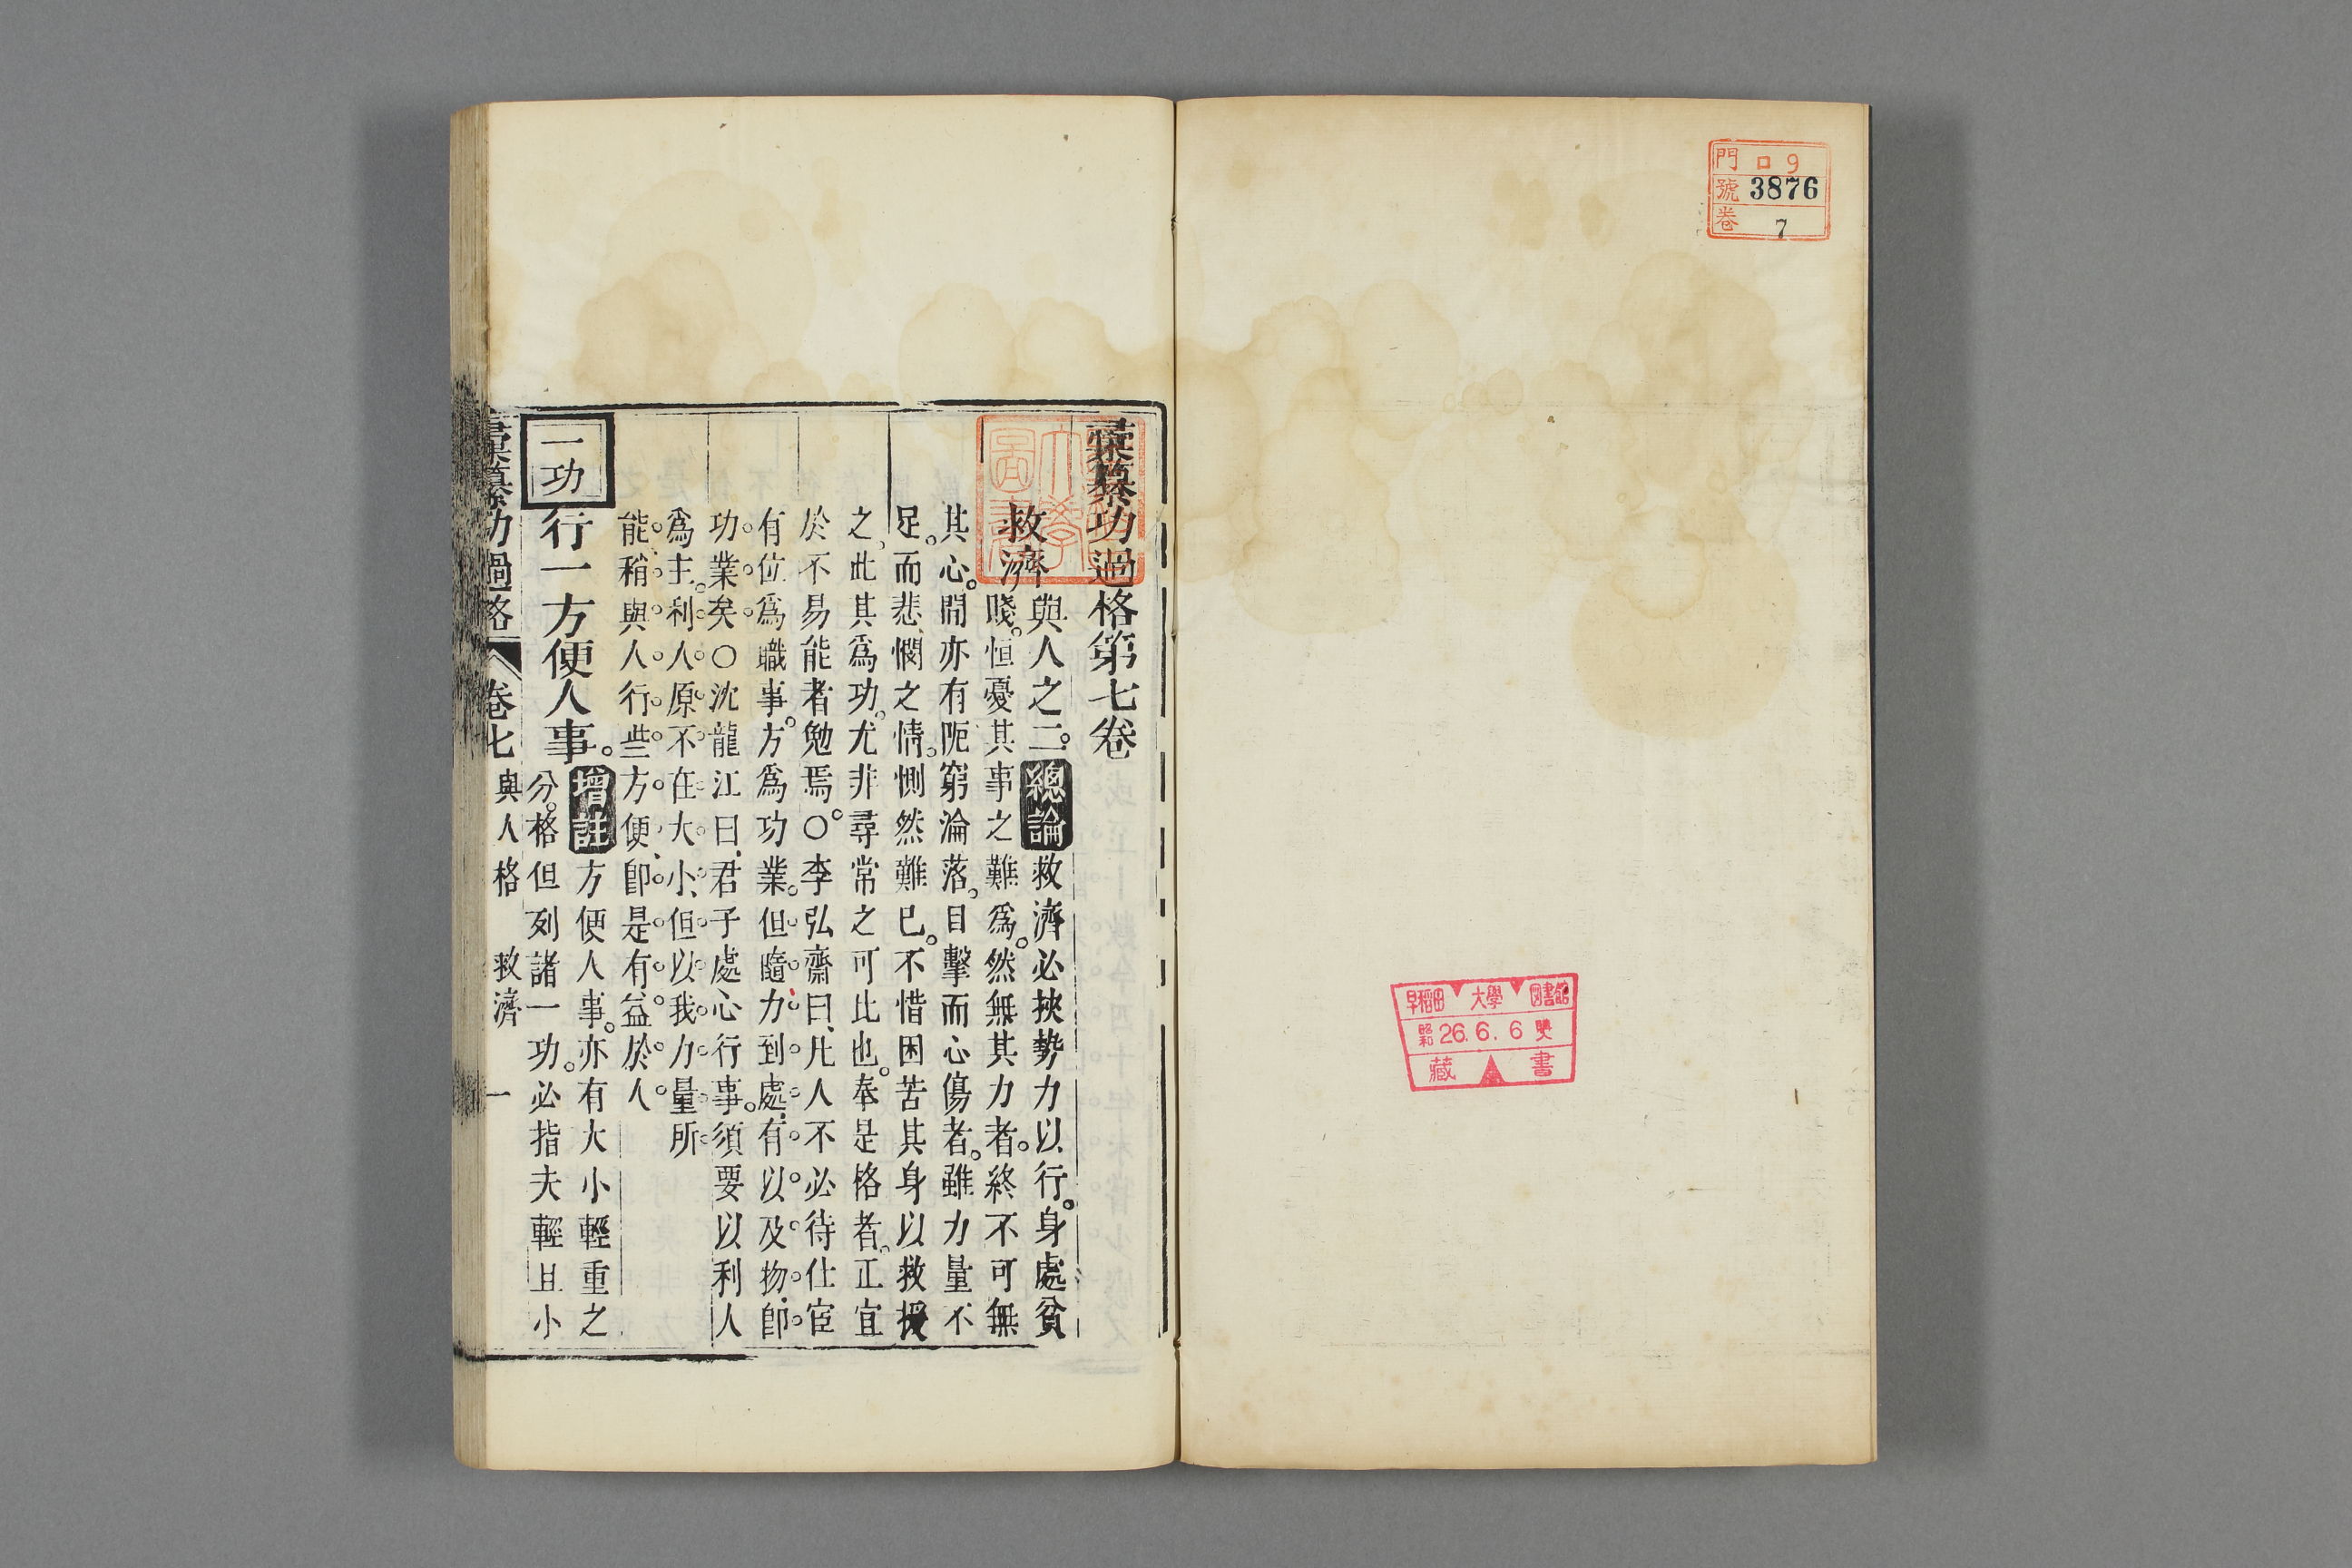 門 ロ 9
號 3876
卷 7
早稻田大學圖書館
昭和 26.6.6
藏書
彙纂功過格第七卷
救濟 與人之二。總論 救濟必挾勢力以行。身處貧
賤。恒憂其事之難爲。然無其力者。終不可無
其心。間亦有阨窮淪落。目擊而心傷者。雖力量不
足。而悲憫之情。惻然難已。不惜困苦其身以救援
之。此其爲功。尤非尋常之可比也。奉是格者。正宜
於不易能者勉焉。○李弘齋曰、凡人不必待仕宦
有位爲職事。方爲功業。但隨力到處。有以及物。卽
功業矣○沈龍江曰、君子處心行事。須要以利人
爲主。利人原不在大小、但以我力量所
能稍與人行些方便、卽是有益於人
一功 行一方便人事。增註 方便人事。亦有大小輕重之
分。格但列諸一功。必指夫輕且小
彙纂功過格 卷七 與人格 救濟 一